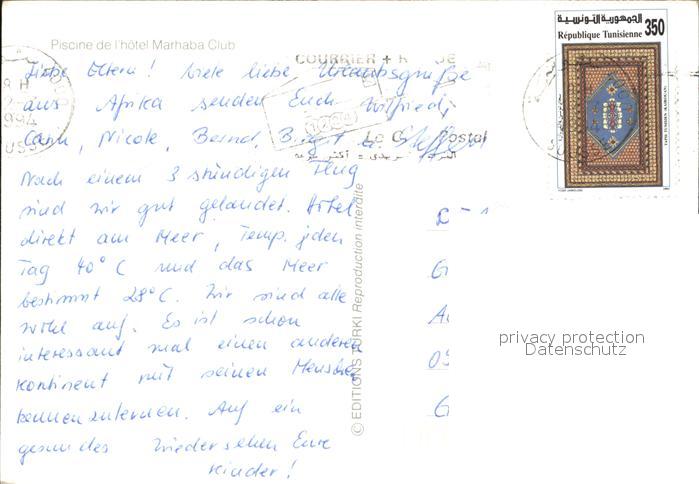 Piscine de l'hôtel Marhaba Club
الجمهورية التونسية
République Tunisienne 350
COURRIER +
Liebe Eltern! Viele liebe Urlaubsgrüße
aus Afrika senden Euch Wilfried,
Nicole, Bernd, Birgit u. Steffen
Le C Postal
1994
Nach einem 3 stündigen Flug
sind wir gut gelandet. Hotel
direkt am Meer, Temp. jeden
Tag 40° C und das Meer
bestimmt 28° C. Wir sind alle
wohl auf. Es ist schon
interessant mal einen anderen
Kontinent mit seinen Menschen
kennenzulernen. Auf ein
gesundes Wiedersehen Eure
Kinder!
© EDITIONS TURKI Reproduction interdite
privacy protection
Datenschutz